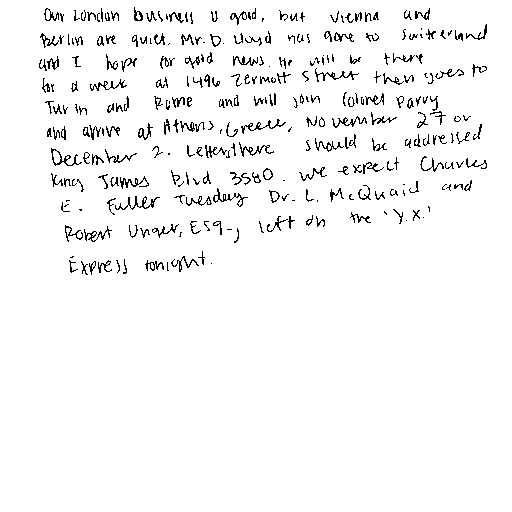 Our London business is good, but Vienna and
Berlin are quiet. Mr. D. Lloyd has gone to Switzerland
and I hope for good news. He will be there
for a week at 1496 Zermott Street then goes to
Turin and Rome and will join Colonel Parry
and arrive at Athens, Greece, November 27 or
December 2. Letters there should be addressed
King James Blvd 3580. We expect Charles
E. Fuller Tuesday Dr. L. McQuaid and
Robert Unger, Esq., left on the 'Y.X.'
Express tonight.